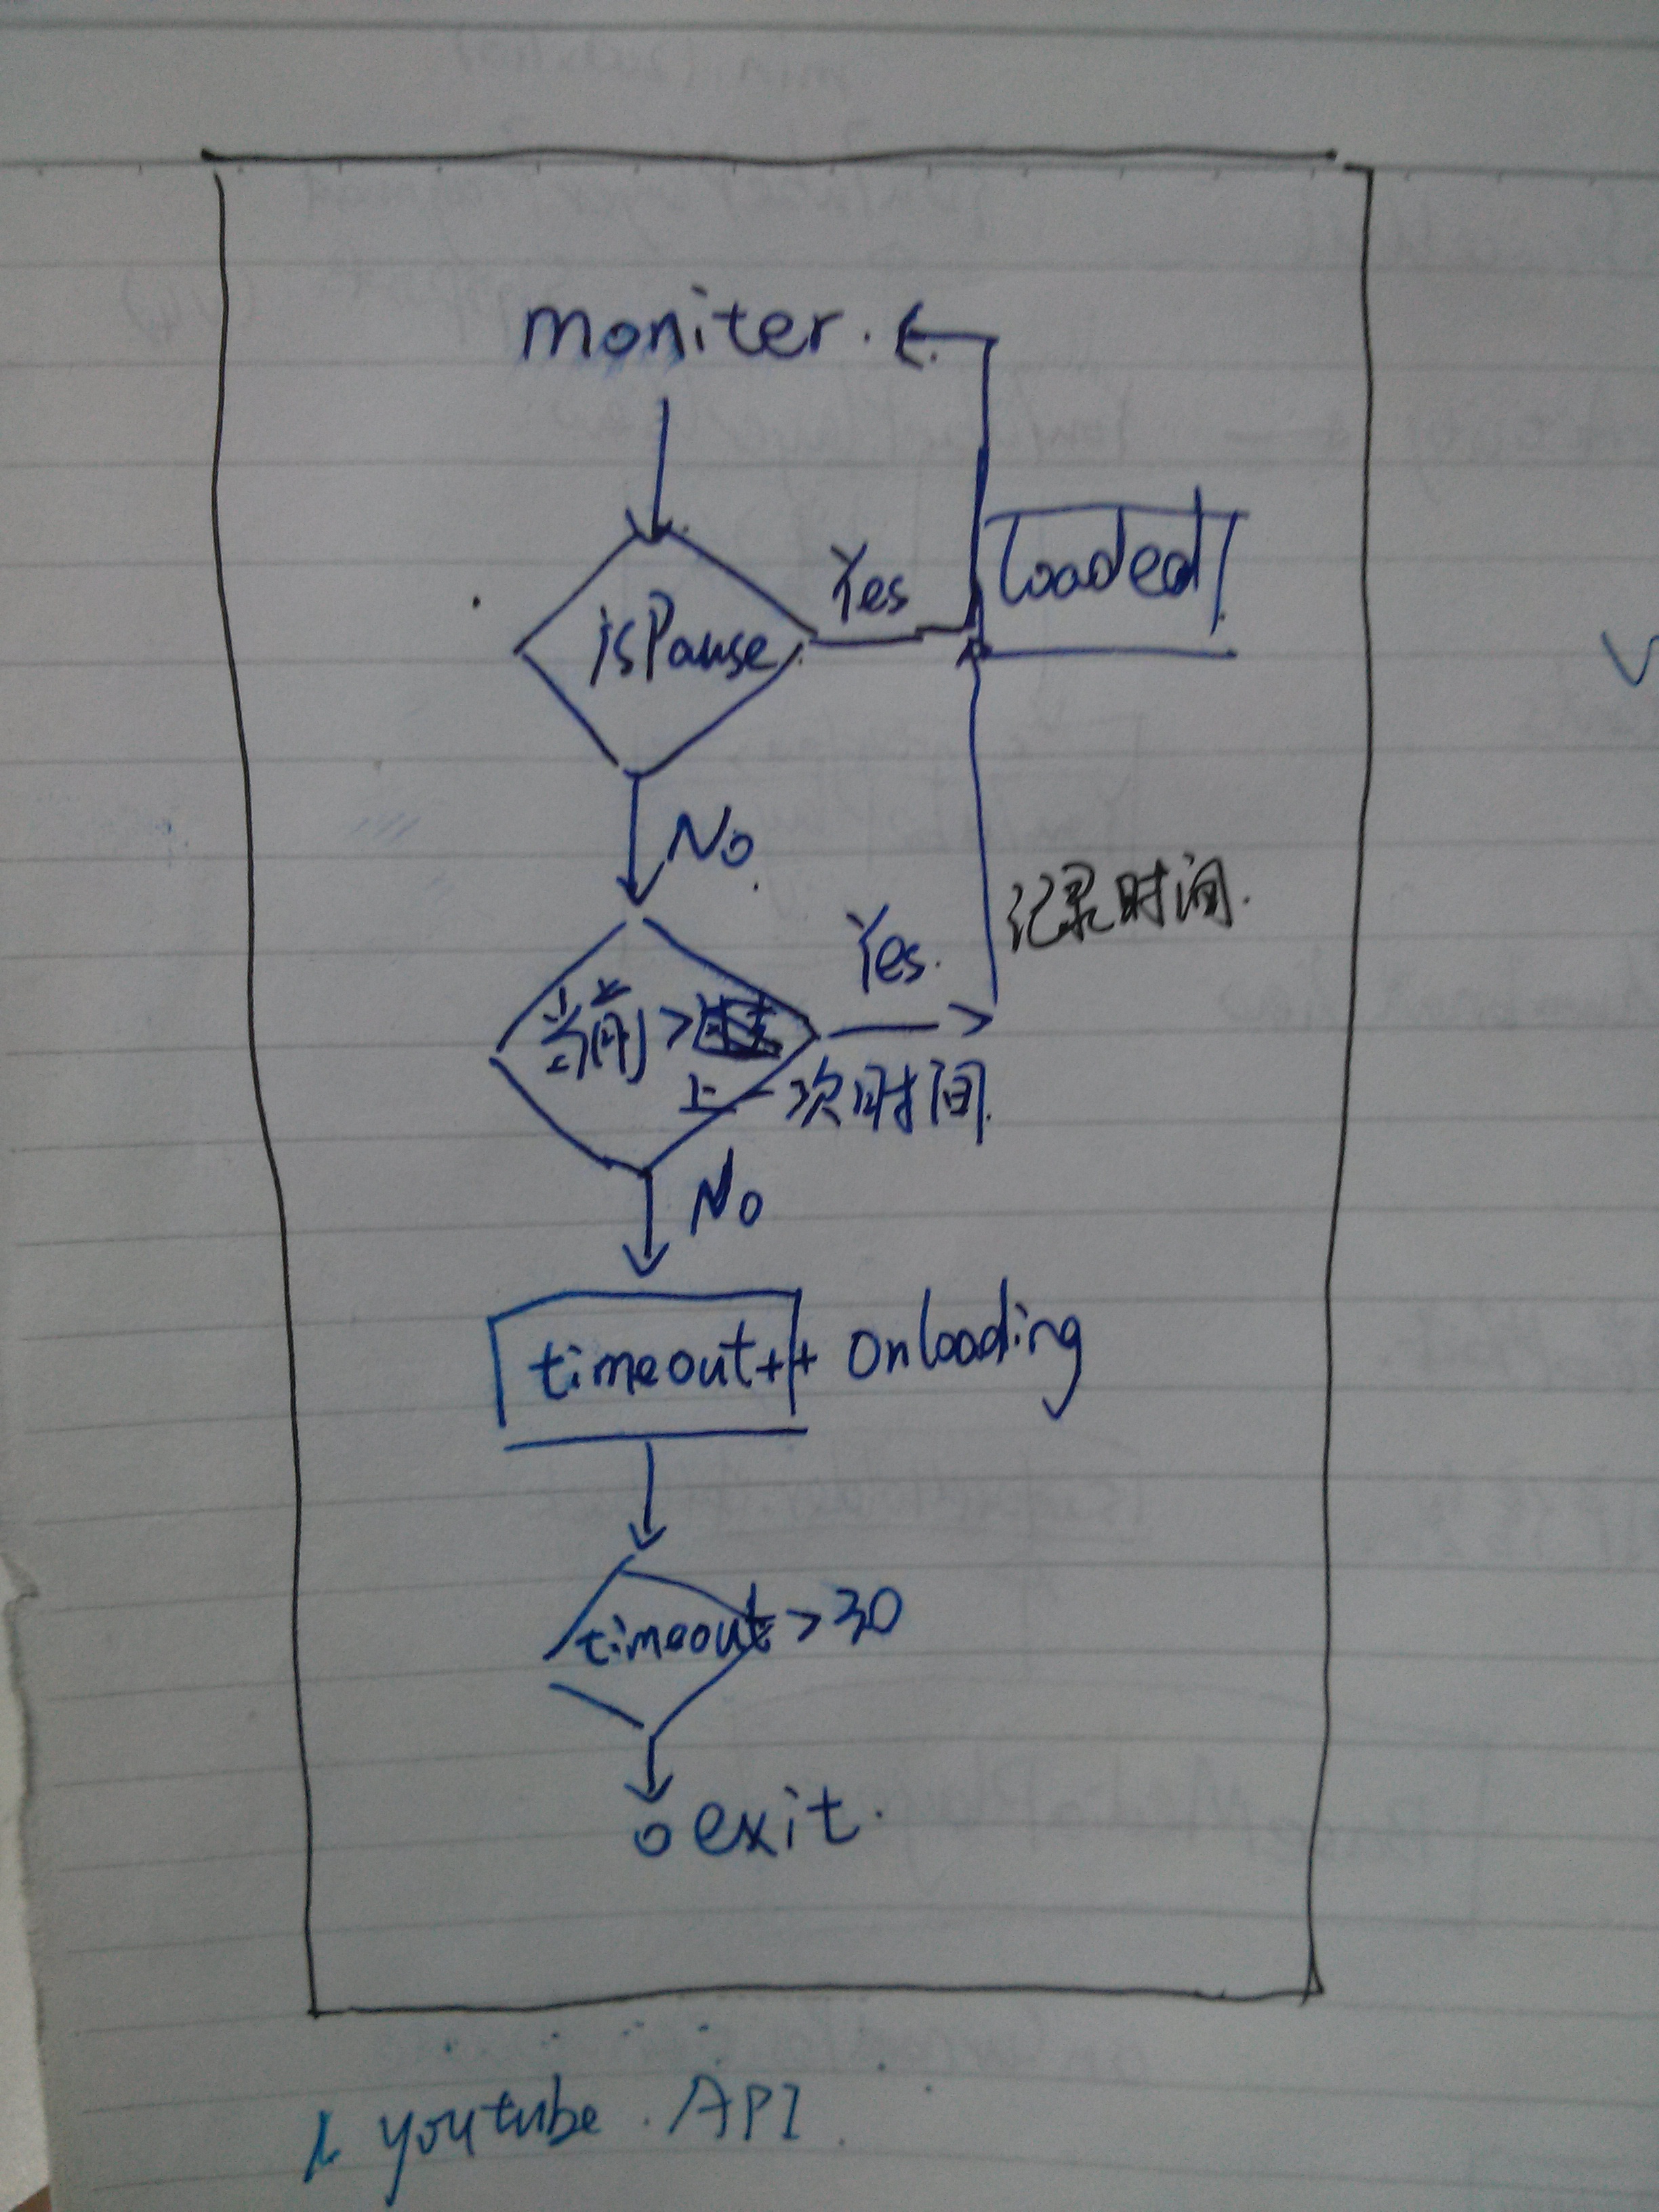 moniter.
Yes
loaded
isPause
No
记录时间.
Yes.
当前>
上一次时间.
No
timeout++ onloading
timeout>30
exit.
youtube. API